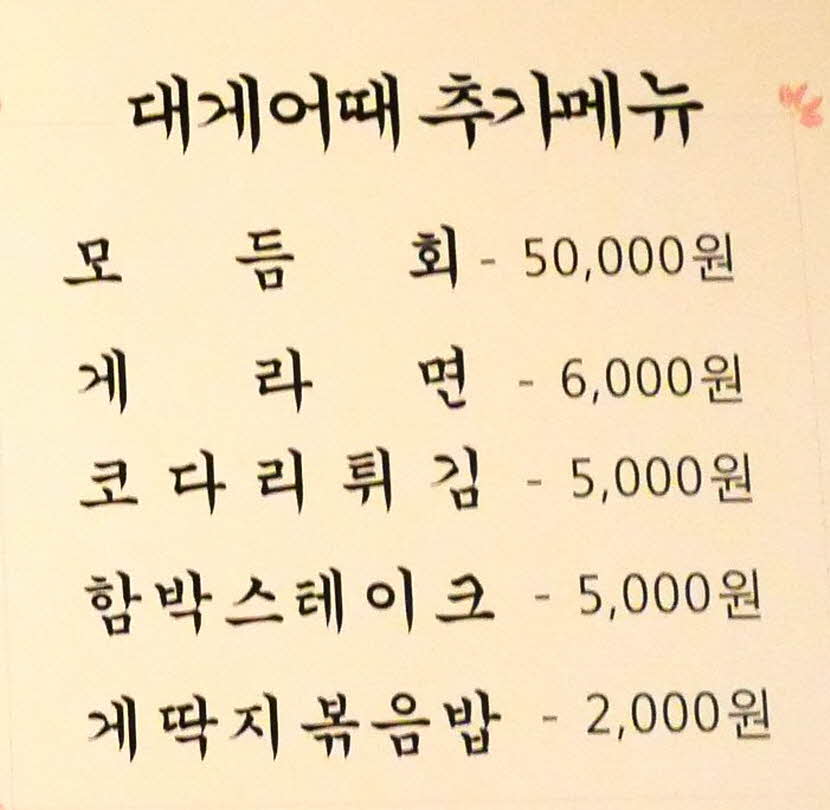 대게어때 추가메뉴
모 듬 회 - 50,000원
게 라 면 - 6,000원
코 다 리 튀 김 - 5,000원
함박스테이크 - 5,000원
게딱지볶음밥 - 2,000원